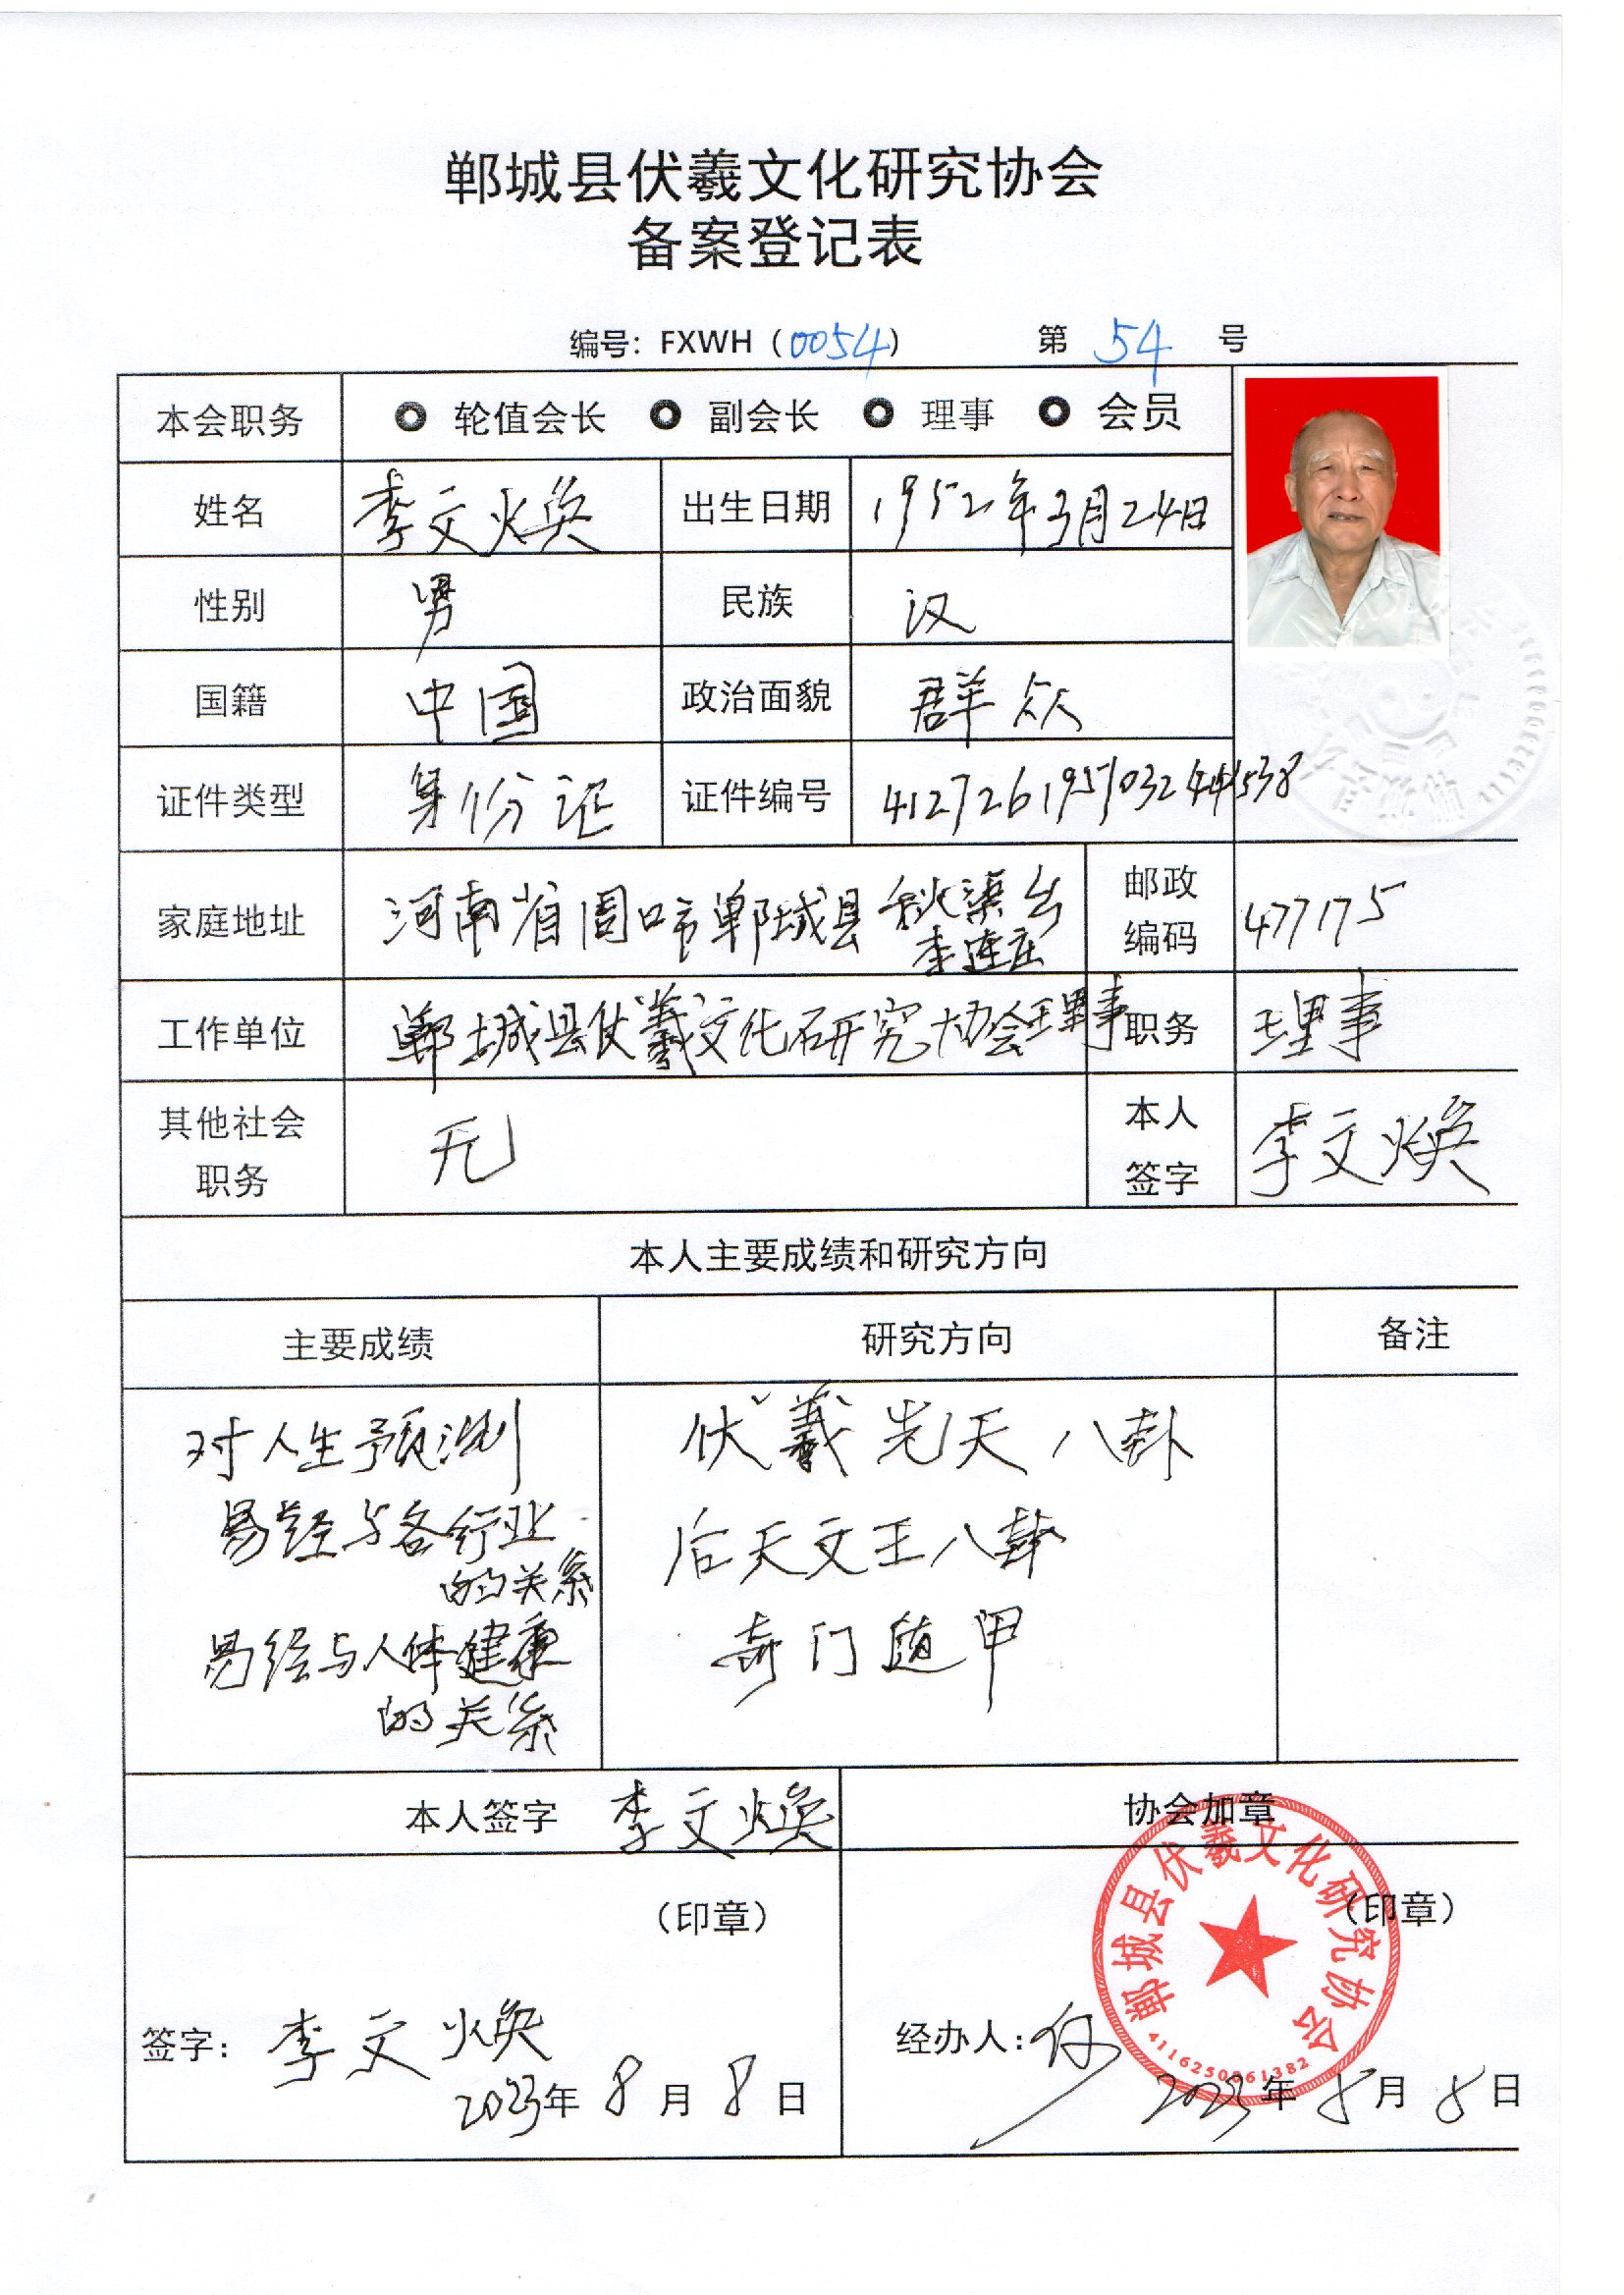 郸城县伏羲文化研究协会
备案登记表
编号: FXWH（0054） 第 54 号
本会职务 轮值会长 副会长 理事 会员
姓名 李文焕 出生日期 1952年3月24日
性别 男 民族 汉
国籍 中国 政治面貌 群众
证件类型 身份证 证件编号
家庭地址 河南省周口市郸城县秋渠乡 邮政
李连庄 编码 477175
工作单位 郸城县伏羲文化研究协会理事 职务 理事
其他社会 无 本人 李文焕
职务 签字
本人主要成绩和研究方向
主要成绩 研究方向 备注
对人生预测 伏羲先天八卦
易经与各行业 后天文王八卦
的关系
易经与人体健康 奇门遁甲
的关系
本人签字 李文焕 协会加章
（印章） （印章）
郸城县伏羲文化研究协会
签字: 李文焕 经办人:
4116250061382
2023年8月8日 2023年8月8日